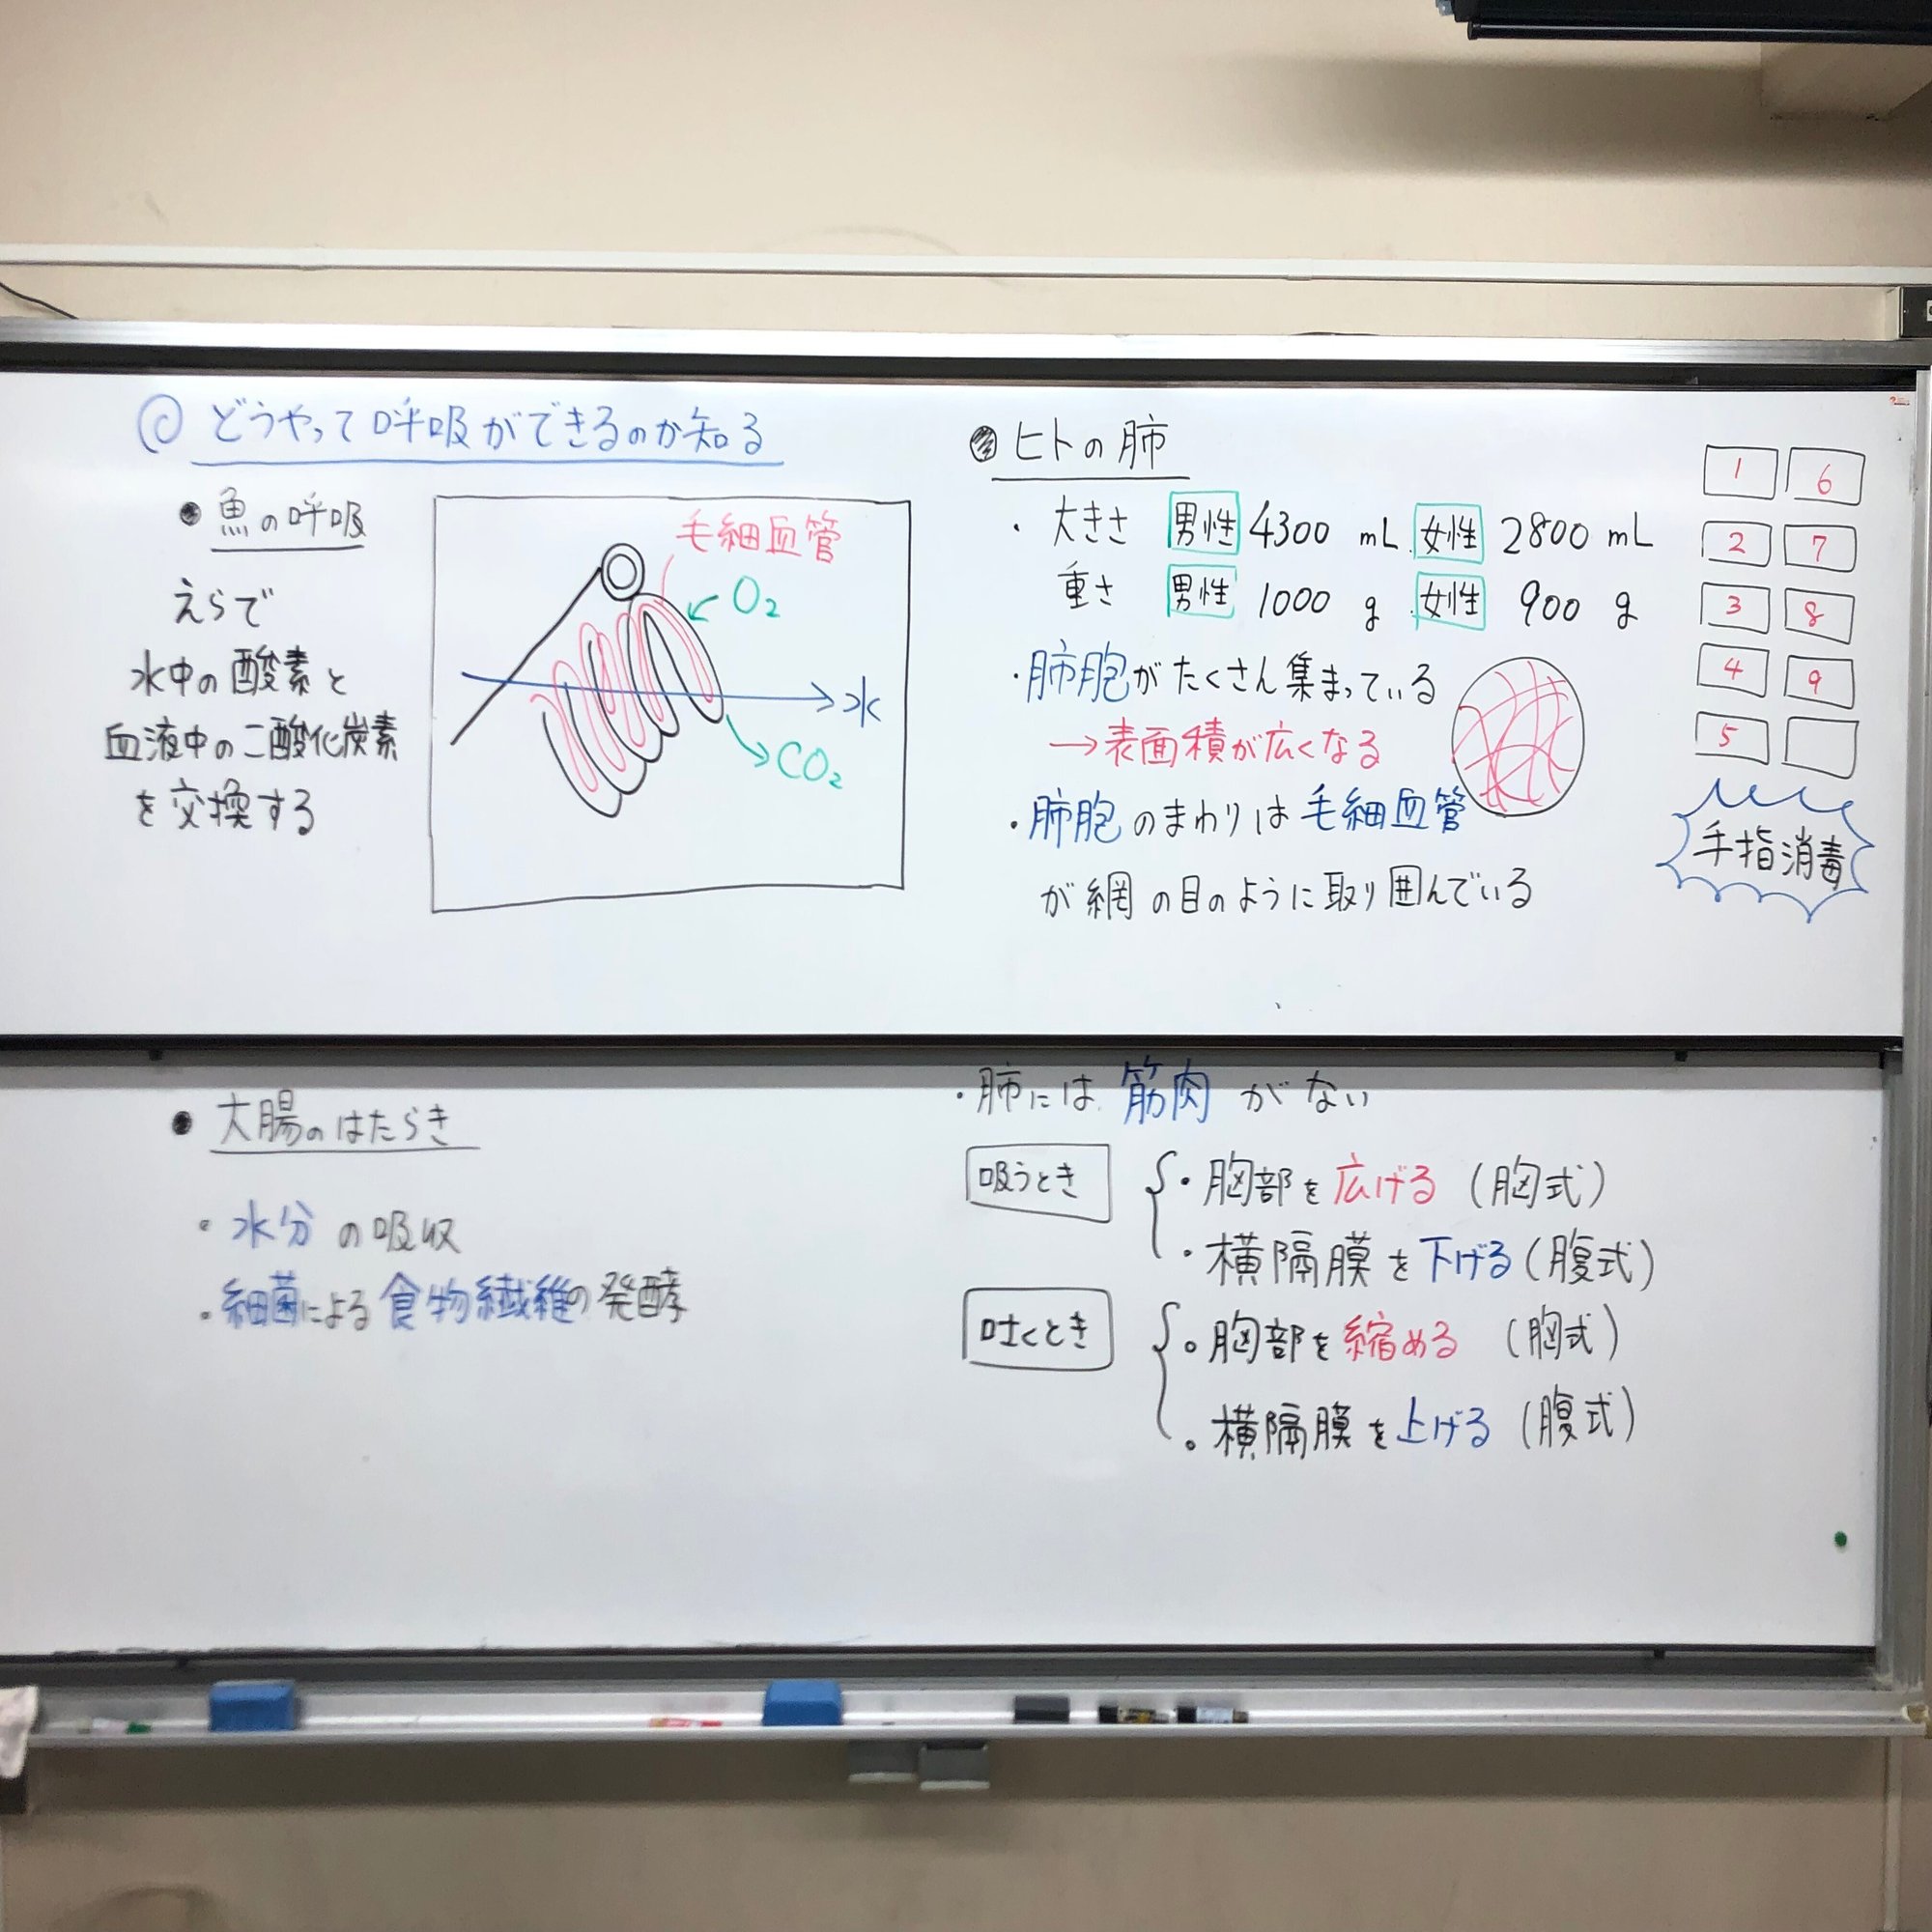 ◎ どうやって呼吸ができるのか知る
● 魚の呼吸
えらで
水中の酸素と
血液中の二酸化炭素
を交換する
毛細血管
O₂
水
CO₂
● ヒトの肺
・大きさ 男性 4300 mL 女性 2800 mL
重さ 男性 1000 g 女性 900 g
・肺胞がたくさん集まっている
→表面積が広くなる
・肺胞のまわりは毛細血管
が網の目のように取り囲んでいる
1 6
2 7
3 8
4 9
5
手指消毒
● 大腸のはたらき
・水分の吸収
・細菌による食物繊維の発酵
・肺には筋肉がない
吸うとき
・胸部を広げる (胸式)
・横隔膜を下げる (腹式)
吐くとき
・胸部を縮める (胸式)
・横隔膜を上げる (腹式)